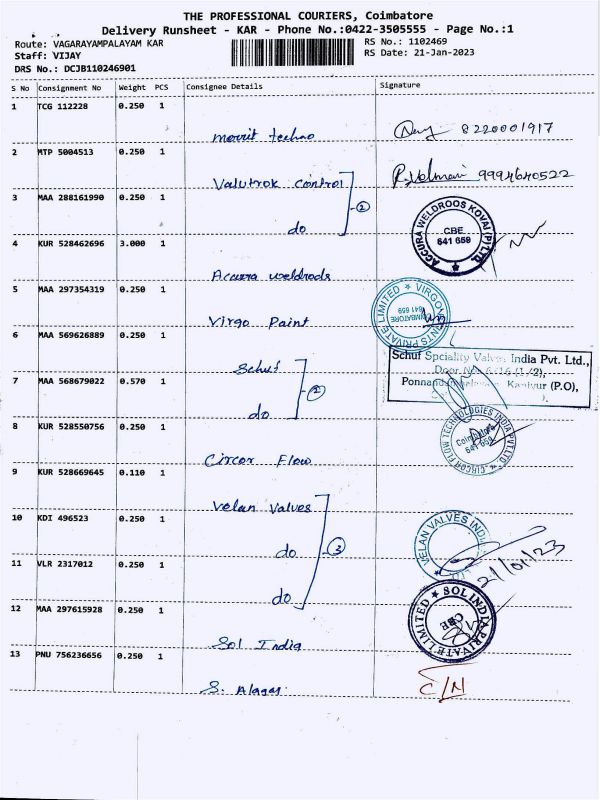 THE PROFESSIONAL COURIERS, Coimbatore
Delivery Runsheet - KAR - Phone No.:0422-3505555 - Page No.:1
Route: VAGARAYAMPALAYAM KAR
RS No.: 1102469
Staff: VIJAY
RS Date: 21-Jan-2023
DRS No.: DCJB110246901
S No Consignment No Weight PCS Consignee Details Signature
1 TCG 112228 0.250 1
merrit techno 8220001917
2 MTP 5004513 0.250 1
Valutrok control 9994640522
3 MAA 288161990 0.250 1
2
do
ACCURA WELDROOS KOVAI (P) LTD.
CBE
641 659
4 KUR 528462696 3.000 1
Accura weldrods
5 MAA 297354319 0.250 1
Virgo Paint
PRIVATE LIMITED ★ VIRGO
COIMBATORE
641 659
6 MAA 569626889 0.250 1
Schuf
Schuf Spciality Valves India Pvt. Ltd.,
Door No.
7 MAA 568679022 0.570 1
2
Kaniyur (P.O),
do
8 KUR 528550756 0.250 1
Circor Flow
CIRCOR FLOW TECHNOLOGIES INDIA PVT LTD.
Coimbatore
641 659
9 KUR 528669645 0.110 1
Velan Valves
10 KDI 496523 0.250 1
do
3
VELAN VALVES INDIA
21/01/23
11 VLR 2317012 0.250 1
do
12 MAA 297615928 0.250 1
Sol India
SOL INDIA PRIVATE LIMITED ★
CBE
13 PNU 756236656 0.250 1
S. Alagar.
C/N